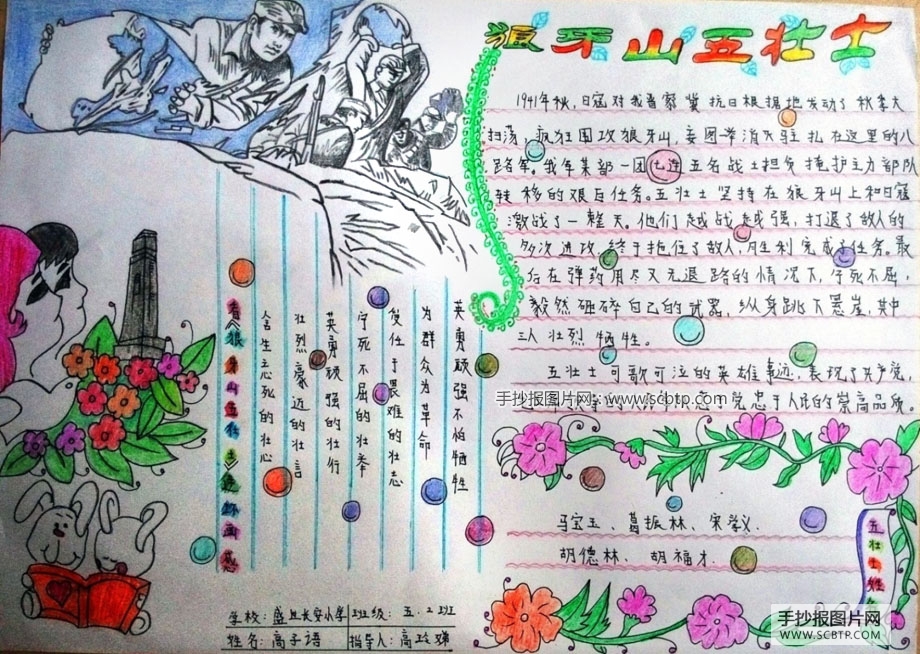 狼牙山五壮士
1941年秋,日寇对我晋察冀抗日根据地发动了秋季大
扫荡,疯狂围攻狼牙山,妄图举消灭驻扎在这里的八
路军。我军某部一团七连五名战士担负掩护主力部队
转移的艰巨任务。五壮士坚持在狼牙山上和日寇
激战了一整天。他们越战越强,打退了敌人的
多次进攻,终于拖住了敌人,胜利完成了任务。最
后在弹药用尽又无退路的情况下,宁死不屈,
毅然砸碎自己的武器,纵身跳下悬崖,其中
三人壮烈牺牲。
五壮士可歌可泣的英雄事迹,表现了共产党,
党忠于人民的崇高品质。
手抄报图片网:www.scbtp.com
马宝玉、葛振林、宋学义、
胡德林、胡福才.
五壮士姓
看《狼牙山五壮士》画感
舍生忘死的壮心
壮烈豪迈的壮言
英勇顽强的壮行
宁死不屈的壮举
畏难的壮志
为群众为革命
英勇顽强不怕牺牲
学校:盛丘长安小学 班级:五.2班
姓名:高子语 指导人:高玲
手抄报图片网
WWW.SCBTP.COM